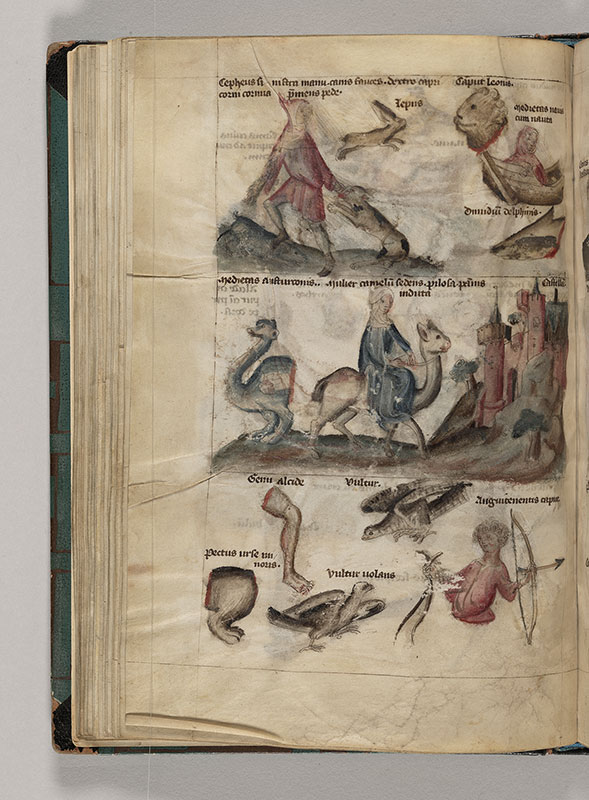 Cepheus si nistra manu canis fauces. dextro capri
corni cornua p̄mens pede.
Lepus
Caput leonis.
medietas nauis
cum nauta
Dimidiū delphinis.
medietas asturconis.
Mulier camelū sedens. pilosa
induta
Genu alcide
Vultur.
Anguitenentis caput
Pectus urse mi
noris.
Vultur uolans